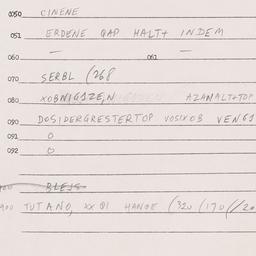 0050 CINENE
051 ERDENE QAP HALT+ INDEM
060 — 061 —
070 SERBL (268
080 XOBNIGSZEN, AZAMALT+TOP
090 DOSIDERGRESTERTOP VOSIXOB VENGS
091 0
092 0
900 TUTANO, XX QI HANGE (320 (170 (/20